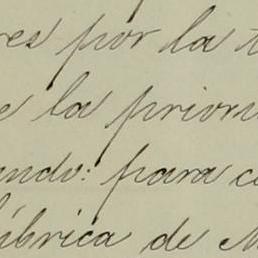 res por la
e la prior
ando: para c
ábrica de